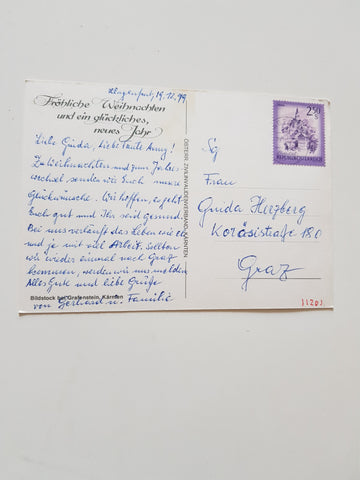 Klagenfurt, 19.12.79
Fröhliche Weihnachten
und ein glückliches,
neues Jahr
Liebe Guida, Liebe Tante Anny!
Zu Weihnachten und zum Jahres
wechsel senden wir Euch unsere
Glückwünsche. Wir hoffen, es geht
Euch gut und Ihr seid gesund.
Bei uns verläuft das Leben wie
und je mit viel Arbeit. Sollten
wir wieder einmal nach Graz
kommen, werden wir uns melden
Alles Gute und liebe Grüße
Bildstock bei Grafenstein, Kärnten
von Gerhard u. Familie
ÖSTERR. ZIVILINVALIDENVERBAND, KÄRNTEN
2.50
REPUBLIK ÖSTERREICH
Frau
Guida Herzberg
Körösistraße 150
Graz
11201